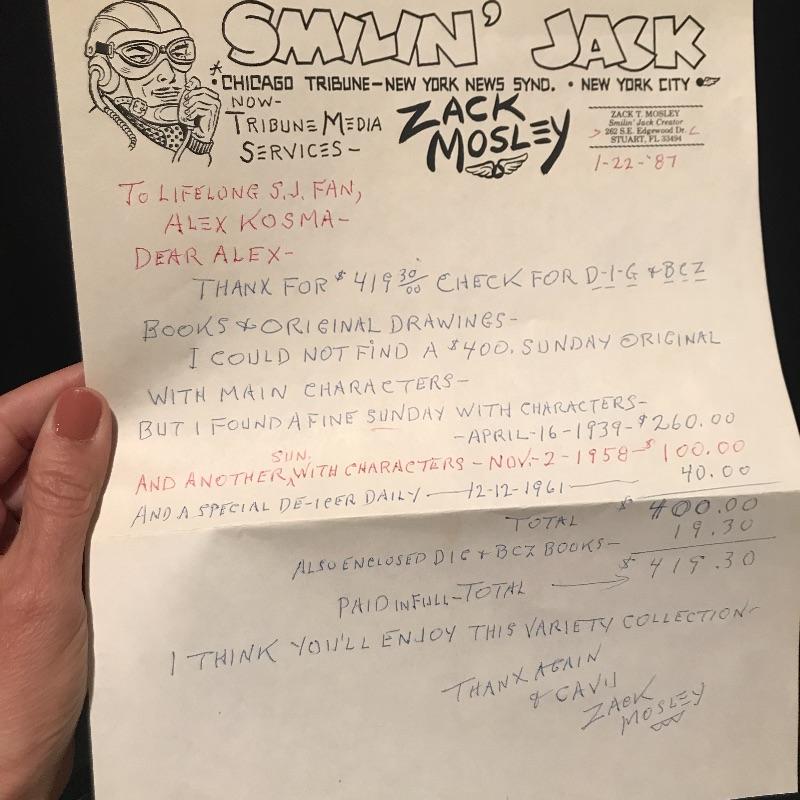 SMILIN' JACK
* • CHICAGO TRIBUNE-NEW YORK NEWS SYND. • NEW YORK CITY •
NOW-
TRIBUNE MEDIA
SERVICES-
ZACK
MOSLEY
ZACK T. MOSLEY
Smilin' Jack Creator
262 S.E. Edgewood Dr.
STUART, FL 33494
1-22-'87
TO LIFELONG S.J. FAN,
ALEX KOSMA-
DEAR ALEX-
THANX FOR $419 30/00 CHECK FOR D-I-G & BCZ
BOOKS & ORIGINAL DRAWINGS-
I COULD NOT FIND A $400. SUNDAY ORIGINAL
WITH MAIN CHARACTERS-
BUT I FOUND A FINE SUNDAY WITH CHARACTERS-
-APRIL-16-1939-$260.00
AND ANOTHER SUN. WITH CHARACTERS - NOV.-2-1958-$100.00
AND A SPECIAL DE-ICER DAILY -12-12-1961- 40.00
TOTAL $400.00
ALSO ENCLOSED DIG & BCZ BOOKS- 19.30
PAID IN FULL-TOTAL $419.30
I THINK YOU'LL ENJOY THIS VARIETY COLLECTION-
THANX AGAIN
& CAVU
ZACK
MOSLEY